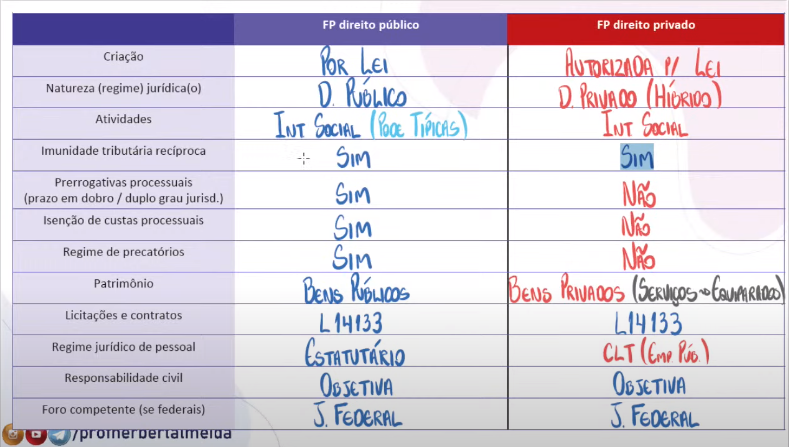 FP direito público FP direito privado
Criação POR LEI AUTORIZADA P/ LEI
Natureza (regime) jurídica(o) D. PÚBLICO D. PRIVADO (HÍBRIDO)
Atividades INT SOCIAL (PODE TÍPICAS) INT SOCIAL
Imunidade tributária recíproca SIM SIM
Prerrogativas processuais
(prazo em dobro / duplo grau jurisd.) SIM NÃO
Isenção de custas processuais SIM NÃO
Regime de precatórios SIM NÃO
Patrimônio BENS PÚBLICOS BENS PRIVADOS (SERVIÇOS → EQUIPARADOS)
Licitações e contratos L14133 L14133
Regime jurídico de pessoal ESTATUTÁRIO CLT (EMP PÚB.)
Responsabilidade civil OBJETIVA OBJETIVA
Foro competente (se federais) J. FEDERAL J. FEDERAL
/profherbertalmeida